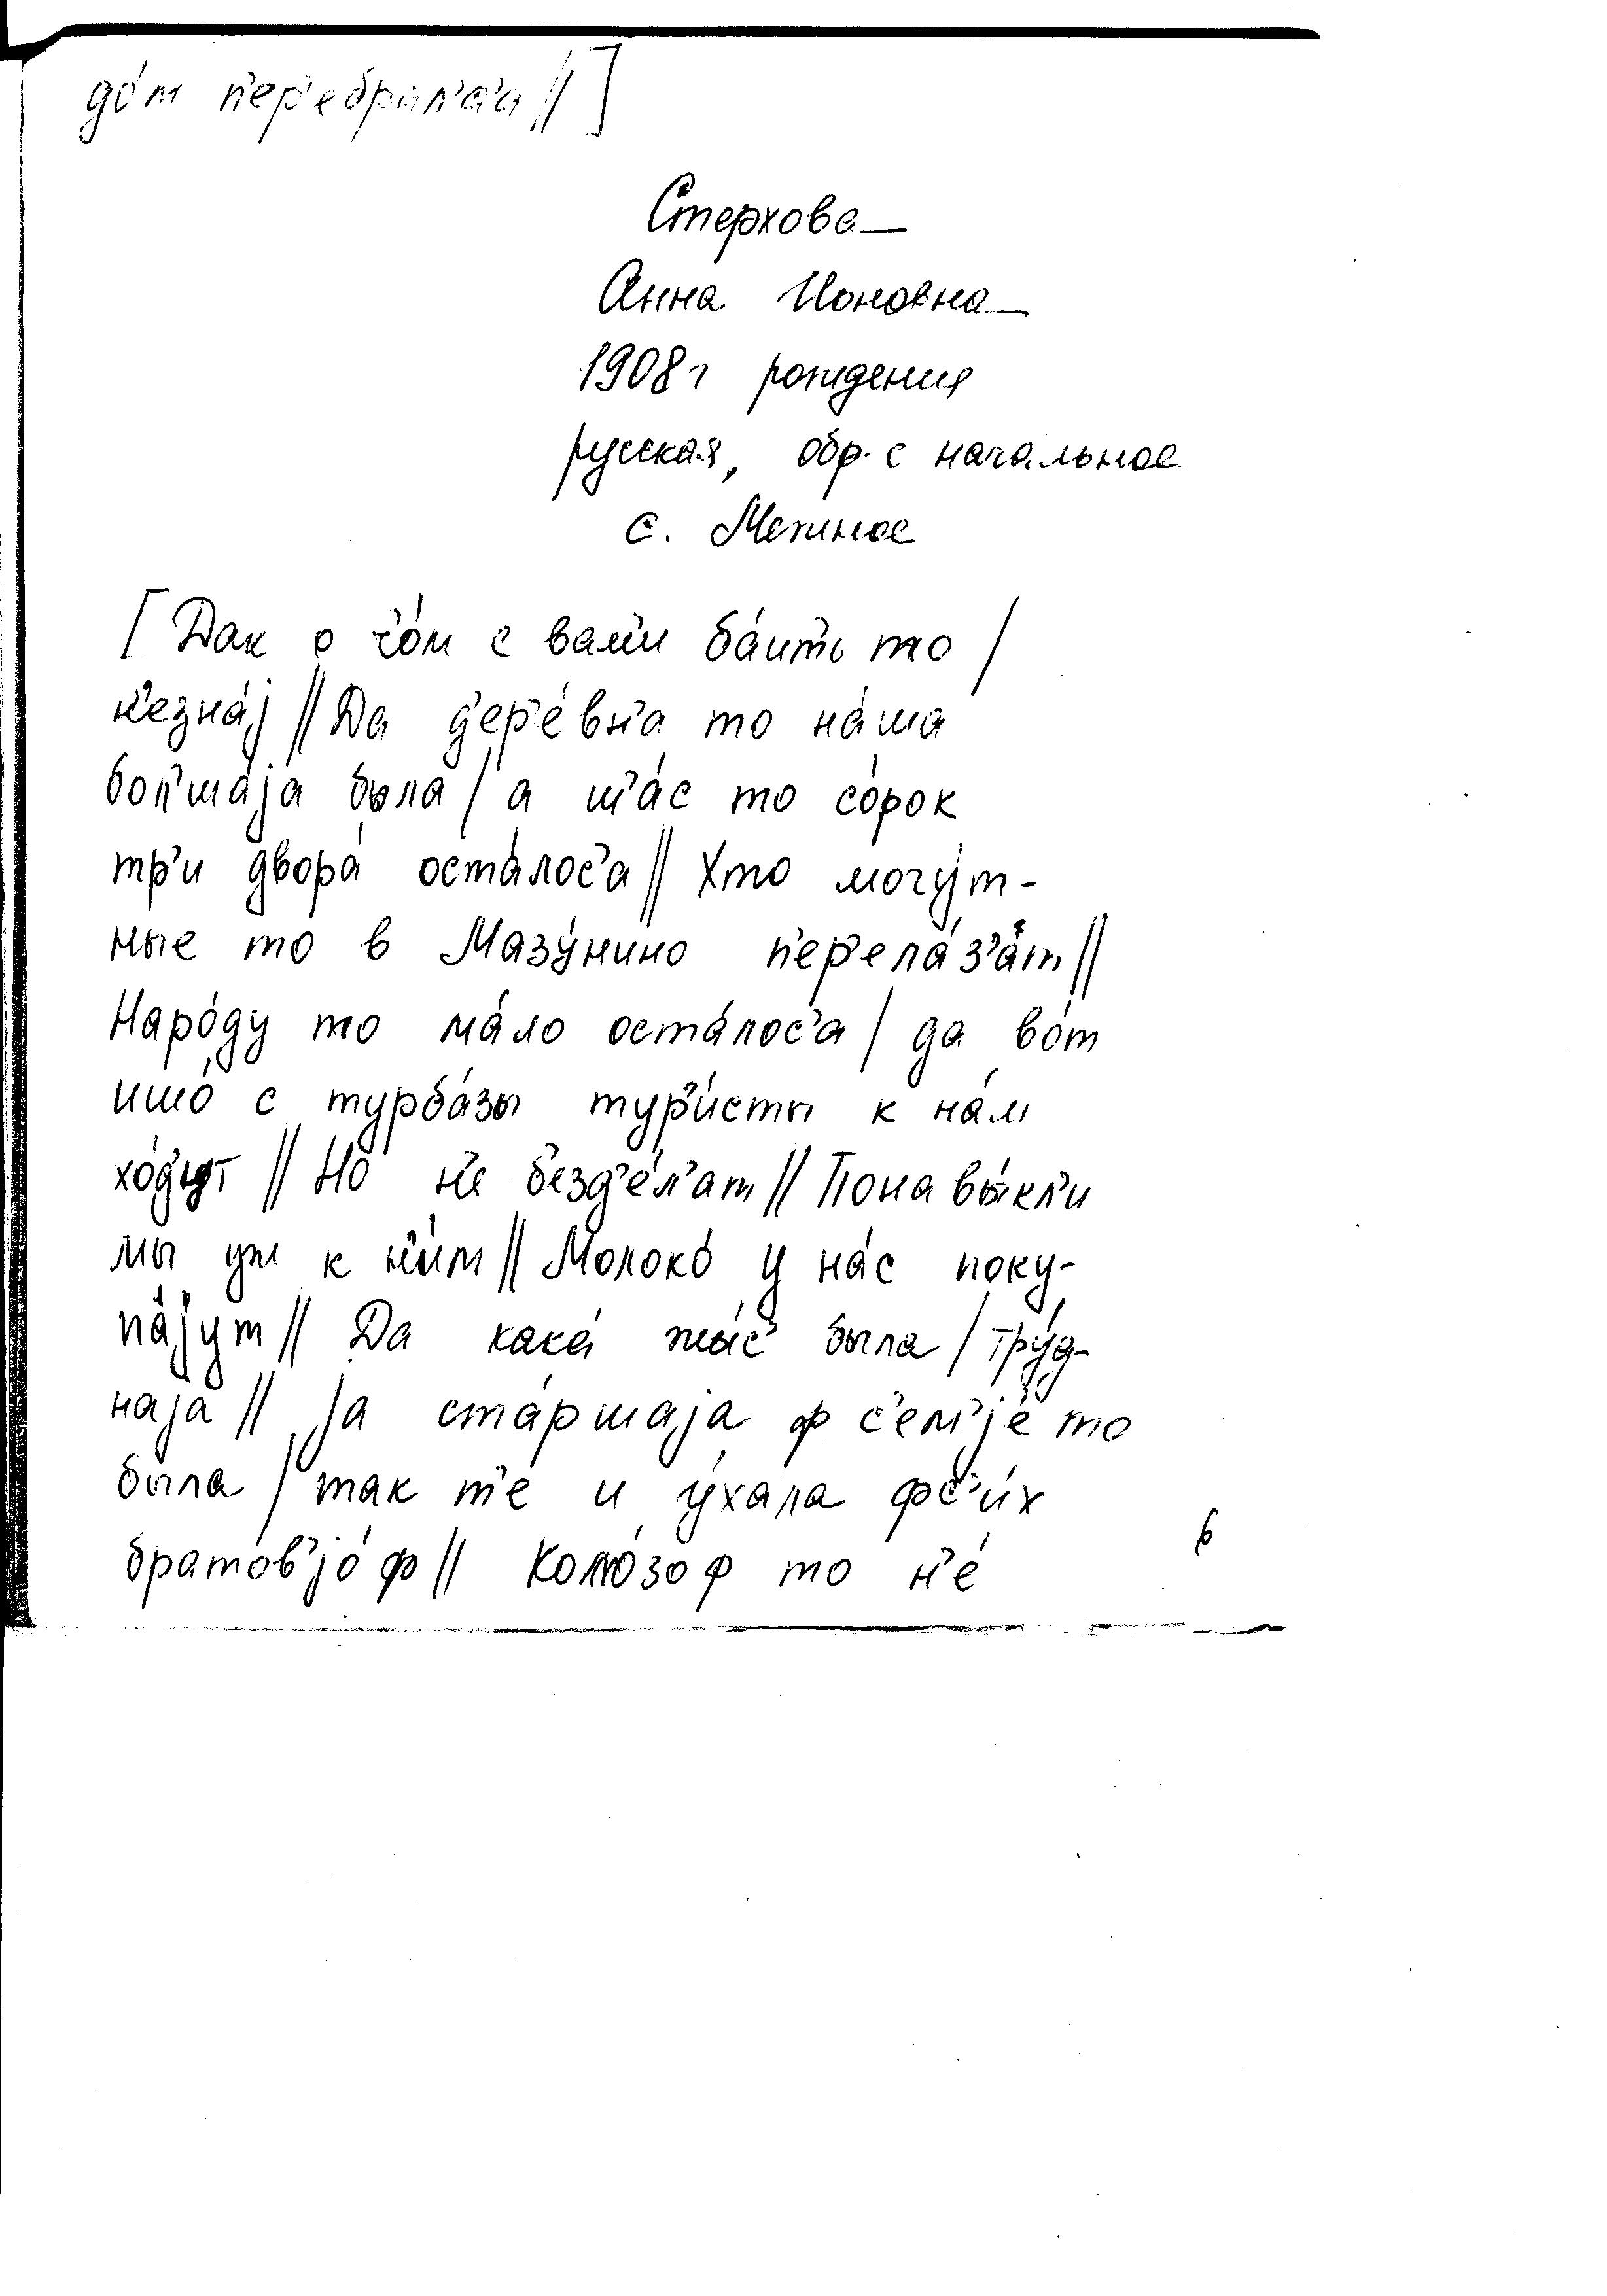 до́м п'ер'ебрал'а́с'а //]
Стерхова
Анна Ионовна
1908 г рождения
русская, обр. с начальное
с. Межное
[Дак о ч'о́м с вам'и ба́ит' то /
н'езна́j // Да д'ер'е́вн'а то на́ша
бол'ша́jа была / а ш'а́с то со́рок
тр'и двора́ оста́лос'а // Хто могу́т-
ные то в Мазу́нино п'ер'ела́з'ат //
Наро́ду то ма́ло оста́лос'а / да во́т
ишо́ с турба́зы тур'и́сты к на́м
хо́д'ут // Но н'е безд'е́л'ат // Понавы́кл'и
мы уж к н'и́м // Молоко́ у на́с поку-
па́jут // Да кака́ жы́с' была / тру́д-
наjа // Jа ста́ршаjа ф с'ем'jе́ то
была / так т'е и у́хала фс'и́х
братов'jо́ф // Колхо́зоф то н'е́
6